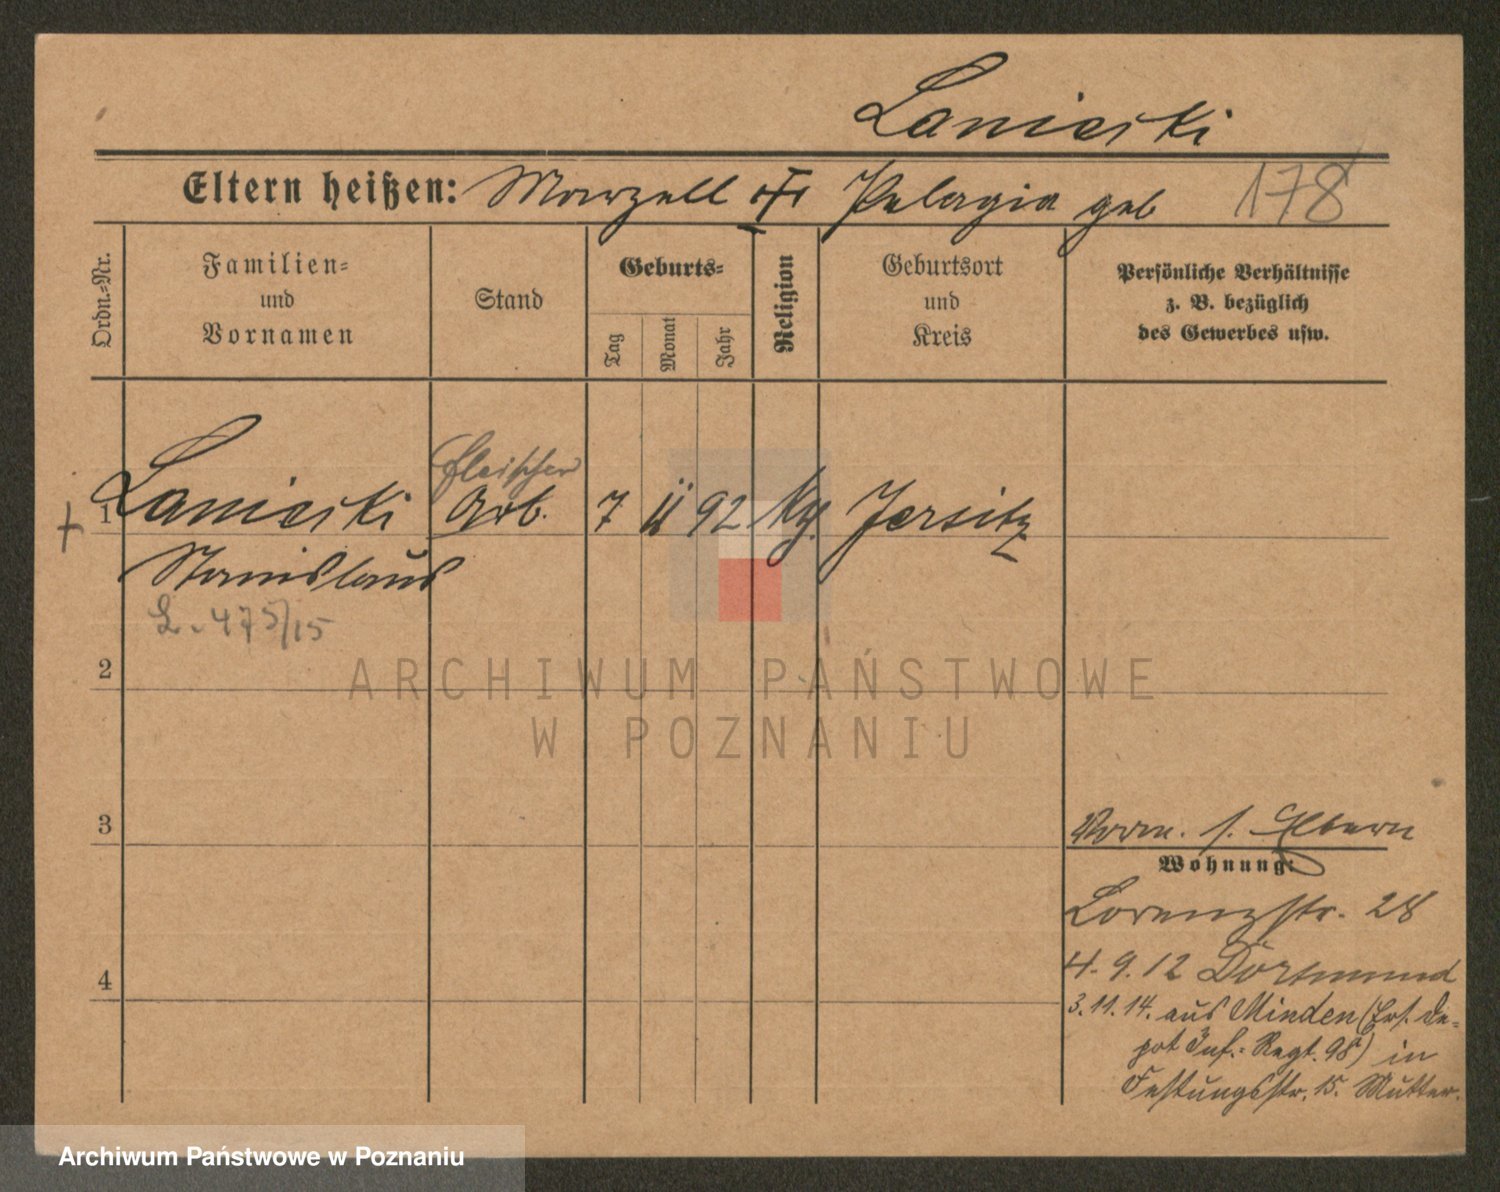 Lanieski
Eltern heißen: Marzell u. Pelagia geb
178
Ordn.-Nr.
Familien- und Vornamen
Stand
Geburts-
Tag
Monat
Jahr
Religion
Geburtsort und Kreis
Persönliche Verhältnisse
z. B. bezüglich
des Gewerbes usw.
Fleischer
+ 1 Lanieski Arb. 7 92 Jersitz
Stanislaus
L. 475/15
2
ARCHIWUM PAŃSTWOWE
W POZNANIU
3
Vorm. s. Eltern
Wohnung:
Lorenzstr. 28
4
4. 9. 12 Dortmund
3. 11. 14. aus Minden (Ers. De-
pot Inf.- Regt. 98) in
Festungsstr. 15. Mutter.
Archiwum Państwowe w Poznaniu